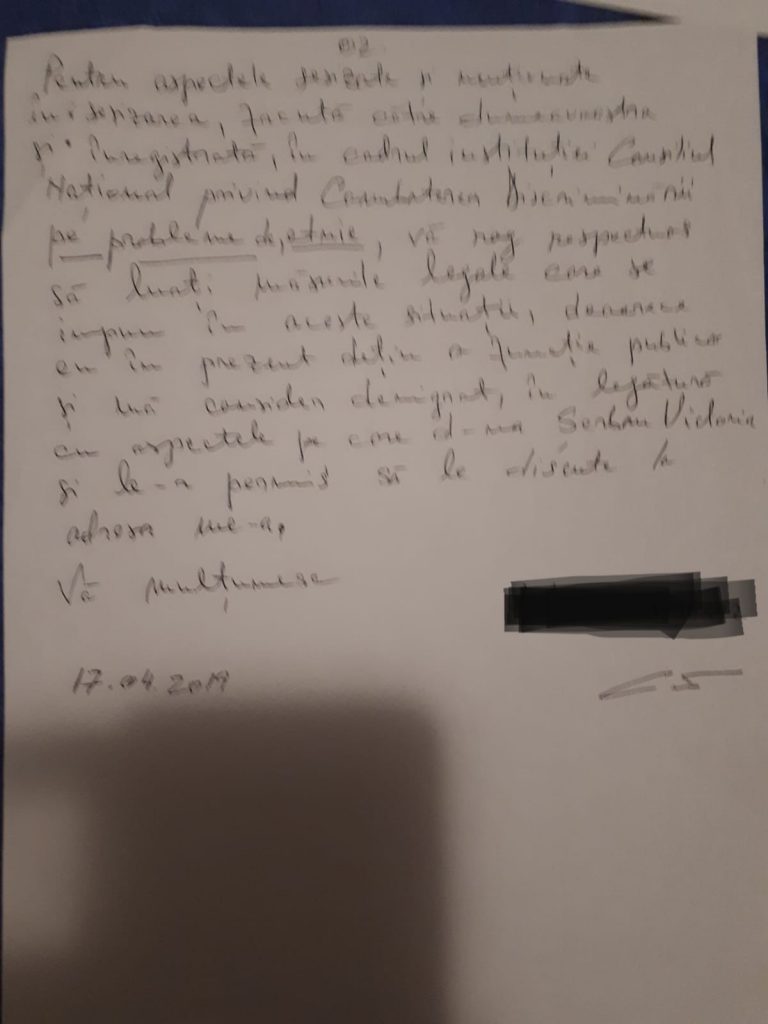 Pentru aspectele sesizate și menționate
în sesizarea, facută către dumneavoastra
și înregistrată, în cadrul instituției Consiliul
Național privind Combaterea Discriminării
pe probleme de, etnie, vă rog respectuos
să luați măsurile legale care se
impun în aceste situații, deoarece
eu în prezent dețin o funcție publica
și mă consider denigrat, în legătură
cu aspectele pe care d-na Serban Victoria
și le-a permis să le discute la
adresa me-a,
Vă mulțumesc
17.04.2019